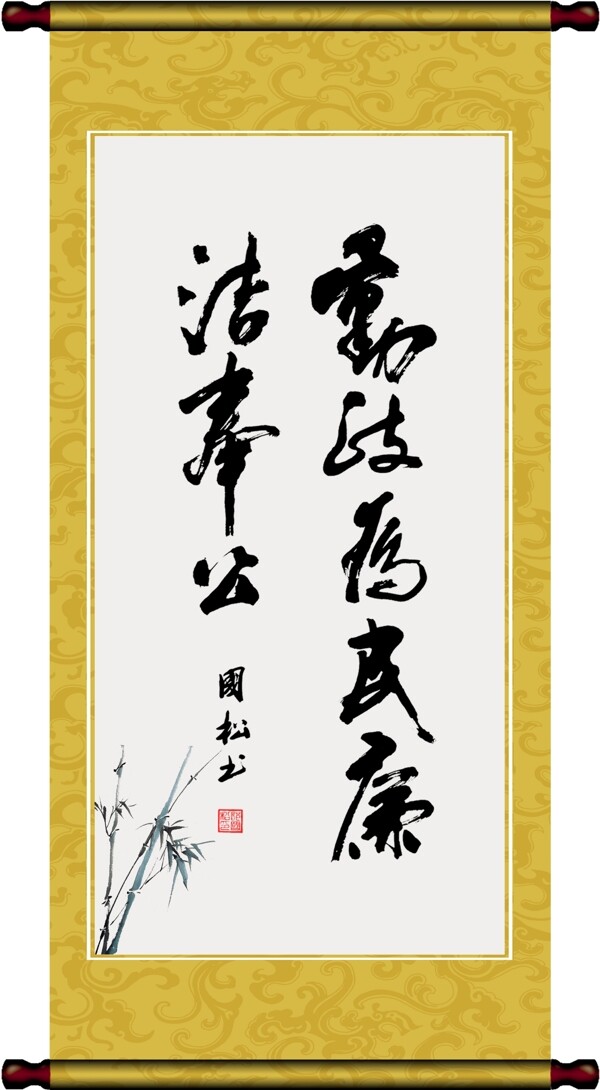 勤政為民廉
洁奉公
國松书